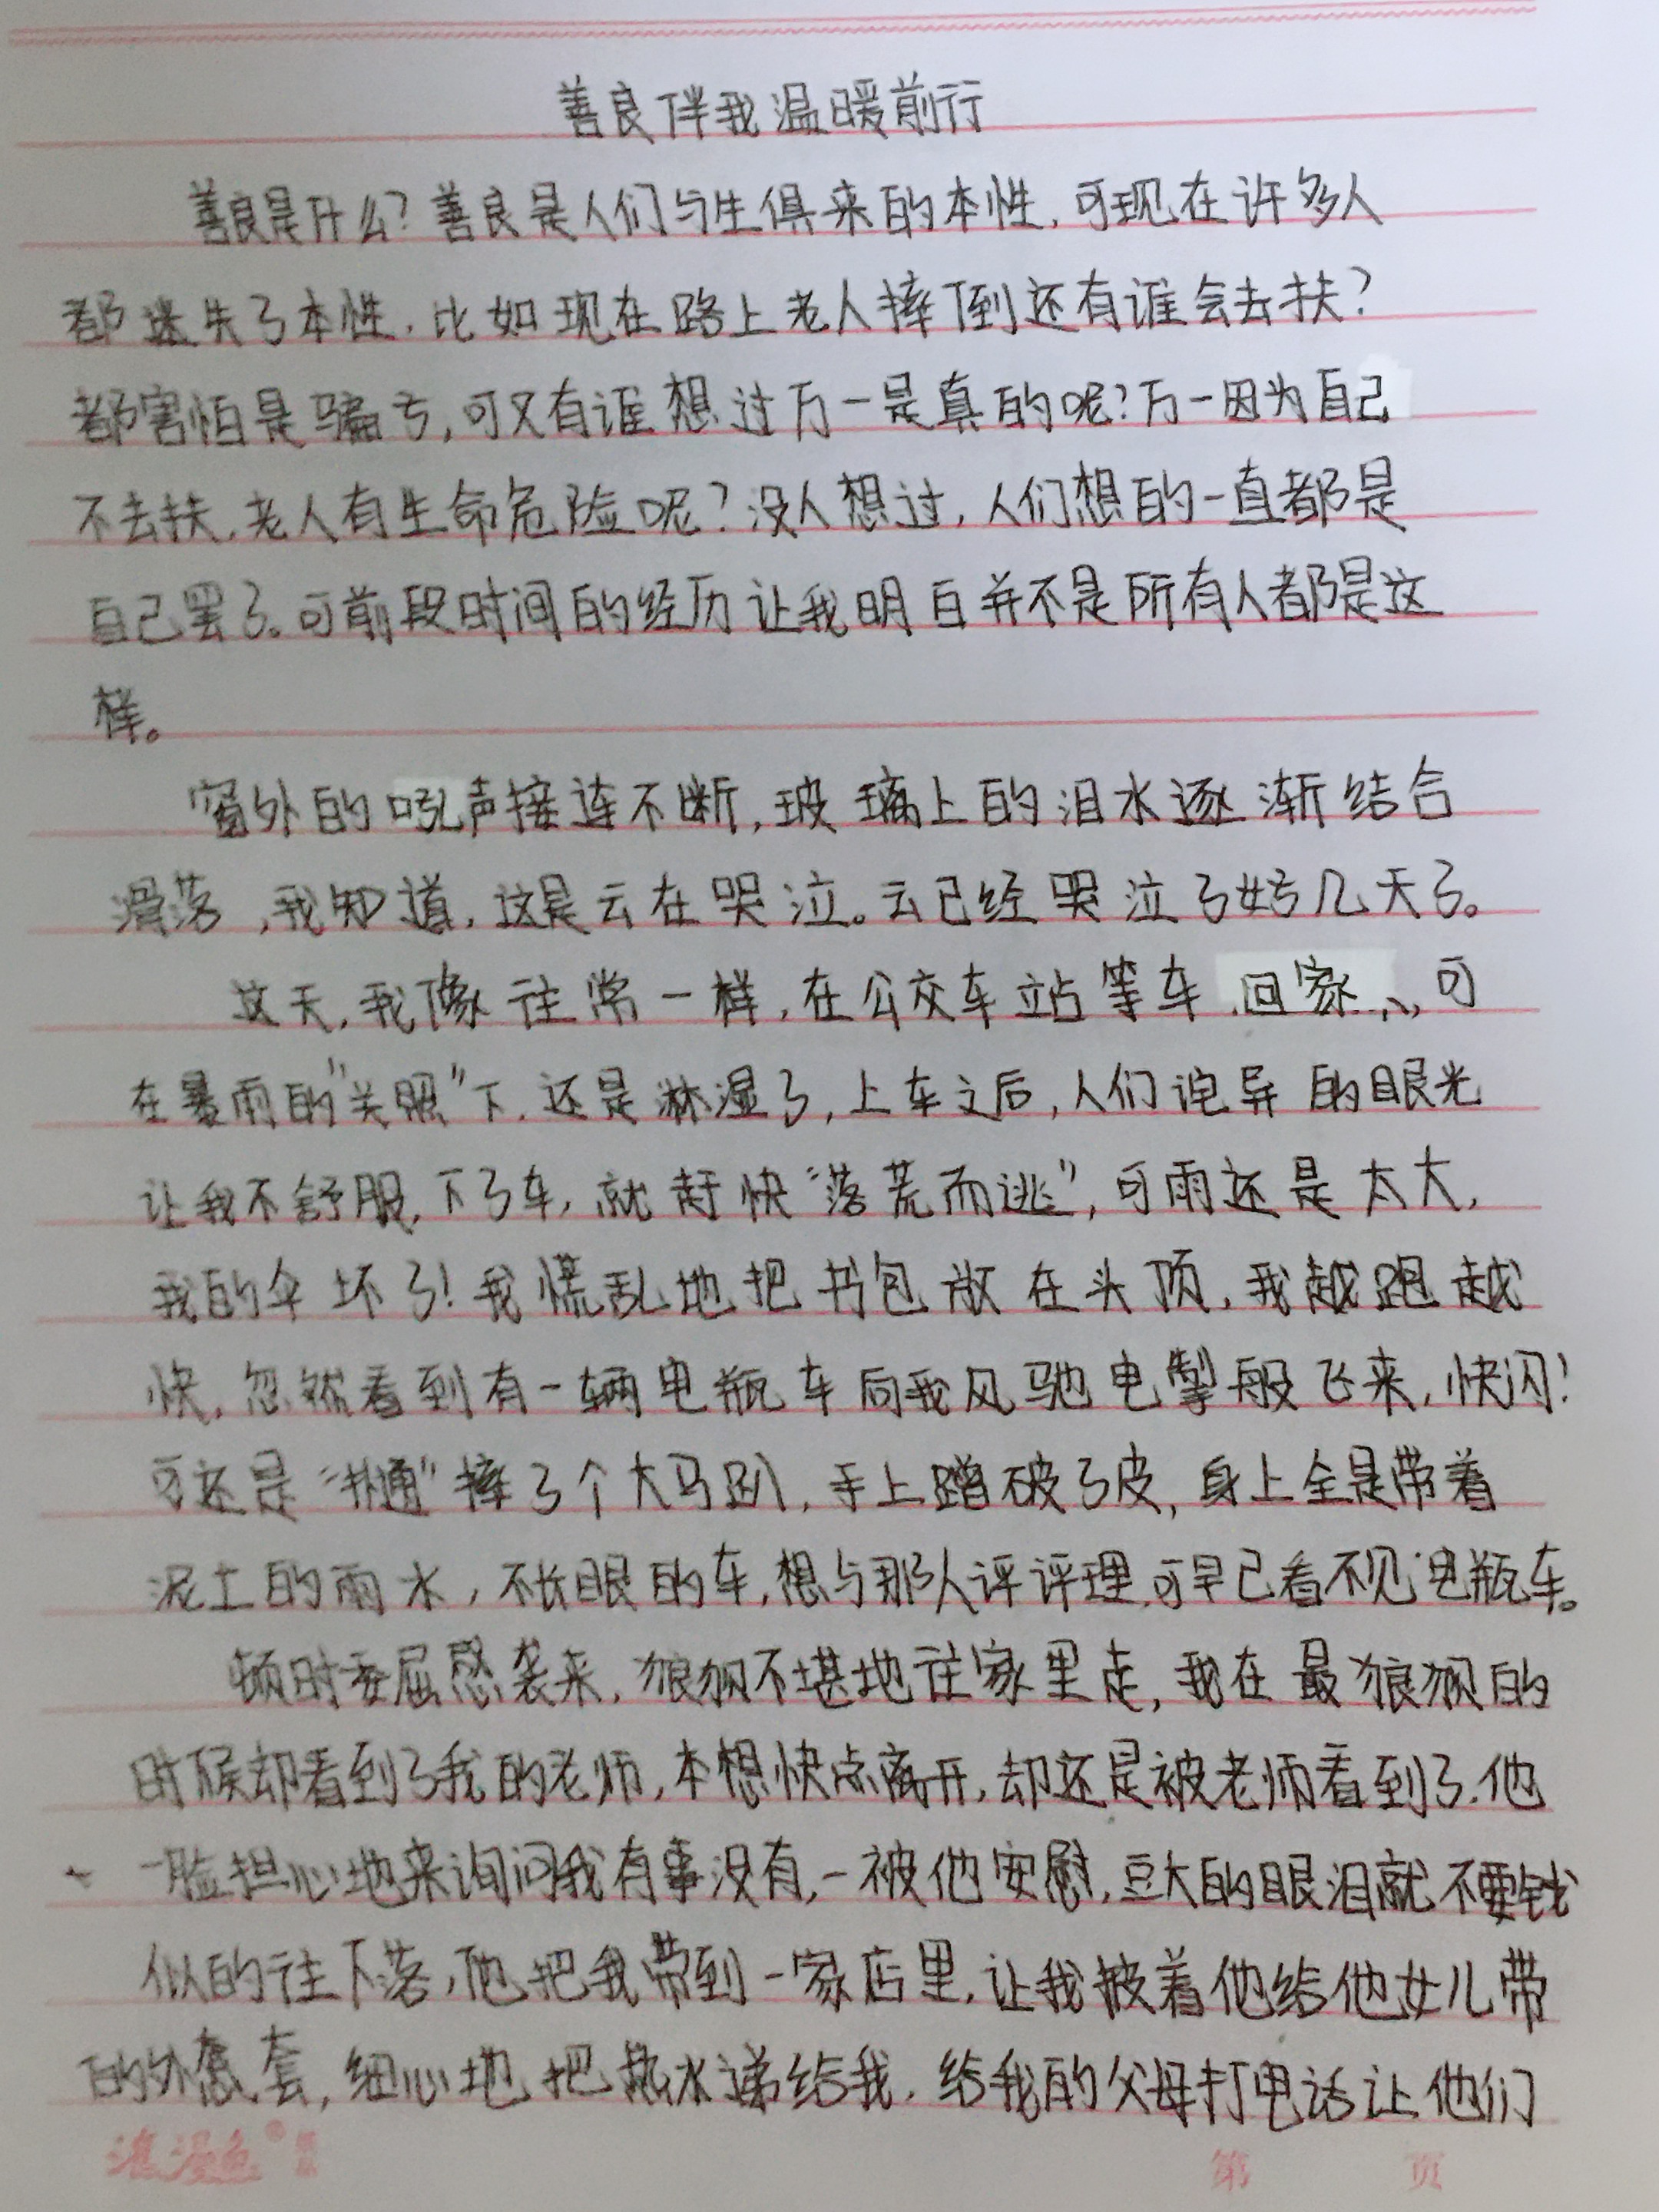 善良伴我温暖前行
善良是什么?善良是人们与生俱来的本性,可现在许多人
都迷失了本性,比如现在路上老人摔倒还有谁会去扶?
都害怕是骗局,可又有谁想过万一是真的呢?万一因为自己
不去扶,老人有生命危险呢?没人想过,人们想的一直都是
自己罢了。可前段时间的经历让我明白并不是所有人都是这
样。
窗外的吼声接连不断,玻璃上的泪水逐渐结合
滑落,我知道,这是云在哭泣。云已经哭泣了好几天了。
这天,我像往常一样,在公交车站等车回家,可
在暴雨的"关照"下,还是淋湿了,上车之后,人们诧异的眼光
让我不舒服,下了车,就赶快"落荒而逃",可雨还是太大,
我的伞坏了!我慌乱地把书包放在头顶,我越跑越
快,忽然看到有一辆电瓶车向我风驰电掣般飞来,快闪!
可还是"扑通"摔了个大马趴,手上蹭破了皮,身上全是带着
泥土的雨水,不长眼的车,想与那人评评理,可早已看不见电瓶车。
顿时委屈感袭来,狼狈不堪地往家里走,我在最狼狈的
时候却看到了我的老师,本想快点离开,却还是被老师看到了.他
一脸担心地来询问我有事没有,一被他安慰,豆大的眼泪就不要钱
似的往下落,他把我带到一家店里,让我披着他给他女儿带
的外套,细心地把热水递给我,给我的父母打电话让他们
浪漫鱼®
第 页